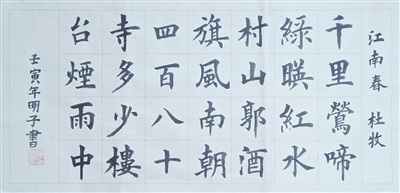 江南春 杜牧
千里鶯啼
綠暎紅水
村山郭酒
旗風南朝
四百八十
寺多少樓
台煙雨中
壬寅年明子書